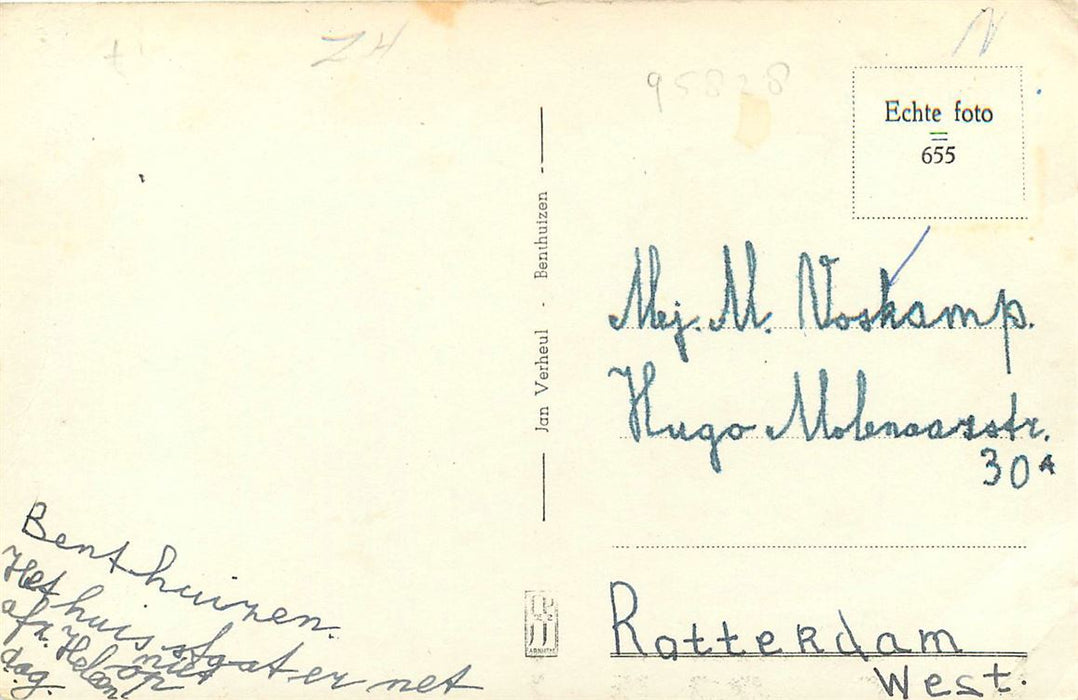 ZH
95828
Echte foto
655
Jan Verheul - Benthuizen
Mej. M. Voskamp.
Hugo Molenaarstr.
30A
Rotterdam
West.
Benthuizen.
Het huis staat er net
niet op
afz. Heleen
dag.